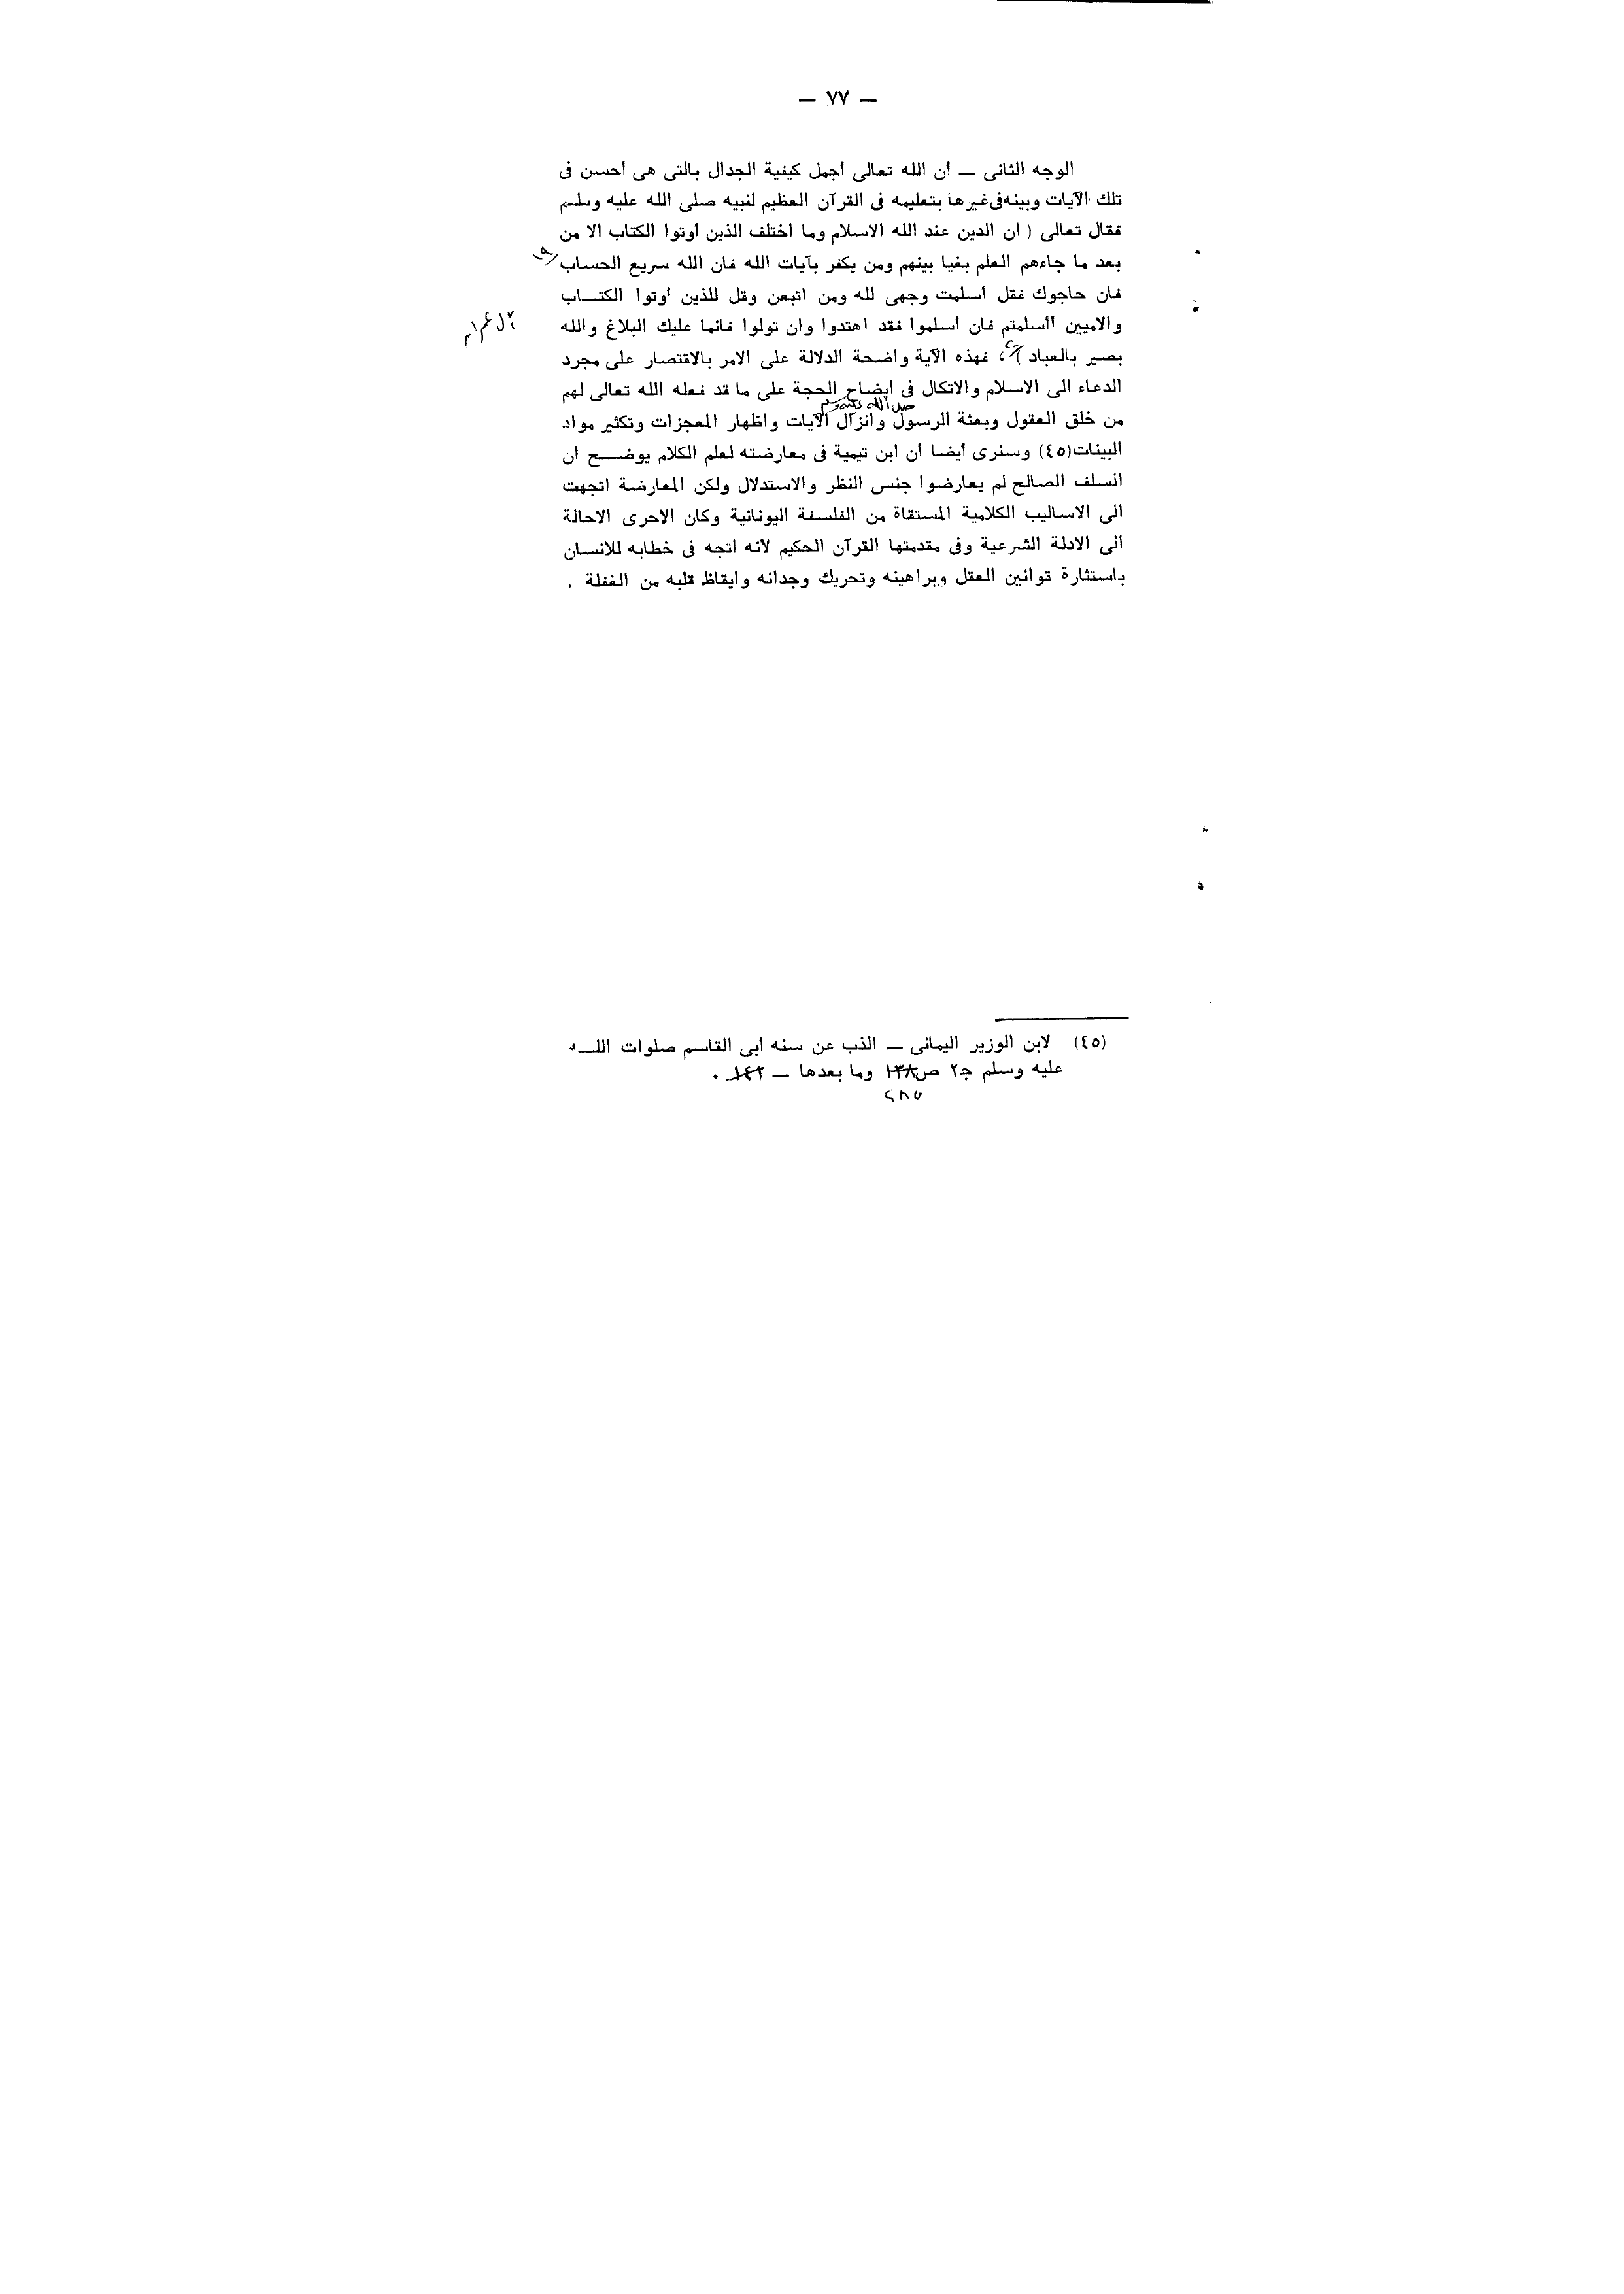 — ٧٧ —
الوجه الثانى — أن الله تعالى أجمل كيفية الجدال بالتى هى أحسن فى
تلك الآيات وبينه فى غيرها بتعليمه فى القرآن العظيم لنبيه صلى الله عليه وسلم
فقال تعالى ( ان الدين عند الله الاسلام وما اختلف الذين أوتوا الكتاب الا من
بعد ما جاءهم العلم بغيا بينهم ومن يكفر بآيات الله فان الله سريع الحساب /١٩
فان حاجوك فقل أسلمت وجهى لله ومن اتبعن وقل للذين أوتوا الكتـــاب
والاميين أأسلمتم فان أسلموا فقد اهتدوا وان تولوا فانما عليك البلاغ والله
آل عمران
بصير بالعباد ) ، فهذه الآية واضحة الدلالة على الامر بالاقتصار على مجرد
الدعاء الى الاسلام والاتكال فى ايضاح الحجة على ما قد فعله الله تعالى لهم
صلى الله عليه وسلم
من خلق العقول وبعثة الرسول وانزال الآيات واظهار المعجزات وتكثير مواد
البينات(٤٥) وسنرى أيضا أن ابن تيمية فى معارضته لعلم الكلام يوضـــح أن
السلف الصالح لم يعارضوا جنس النظر والاستدلال ولكن المعارضة اتجهت
الى الاساليب الكلامية المستقاة من الفلسفة اليونانية وكان الاحرى الاحالة
الى الادلة الشرعية وفى مقدمتها القرآن الحكيم لأنه اتجه فى خطابه للانسان
باستثارة قوانين العقل وبراهينه وتحريك وجدانه وايقاظ قلبه من الغفلة .
(٤٥) لابن الوزير اليمانى — الذب عن سنه أبى القاسم صلوات اللـــه
عليه وسلم ج٢ ص١٣٨ وما بعدها — ١٤٢ .